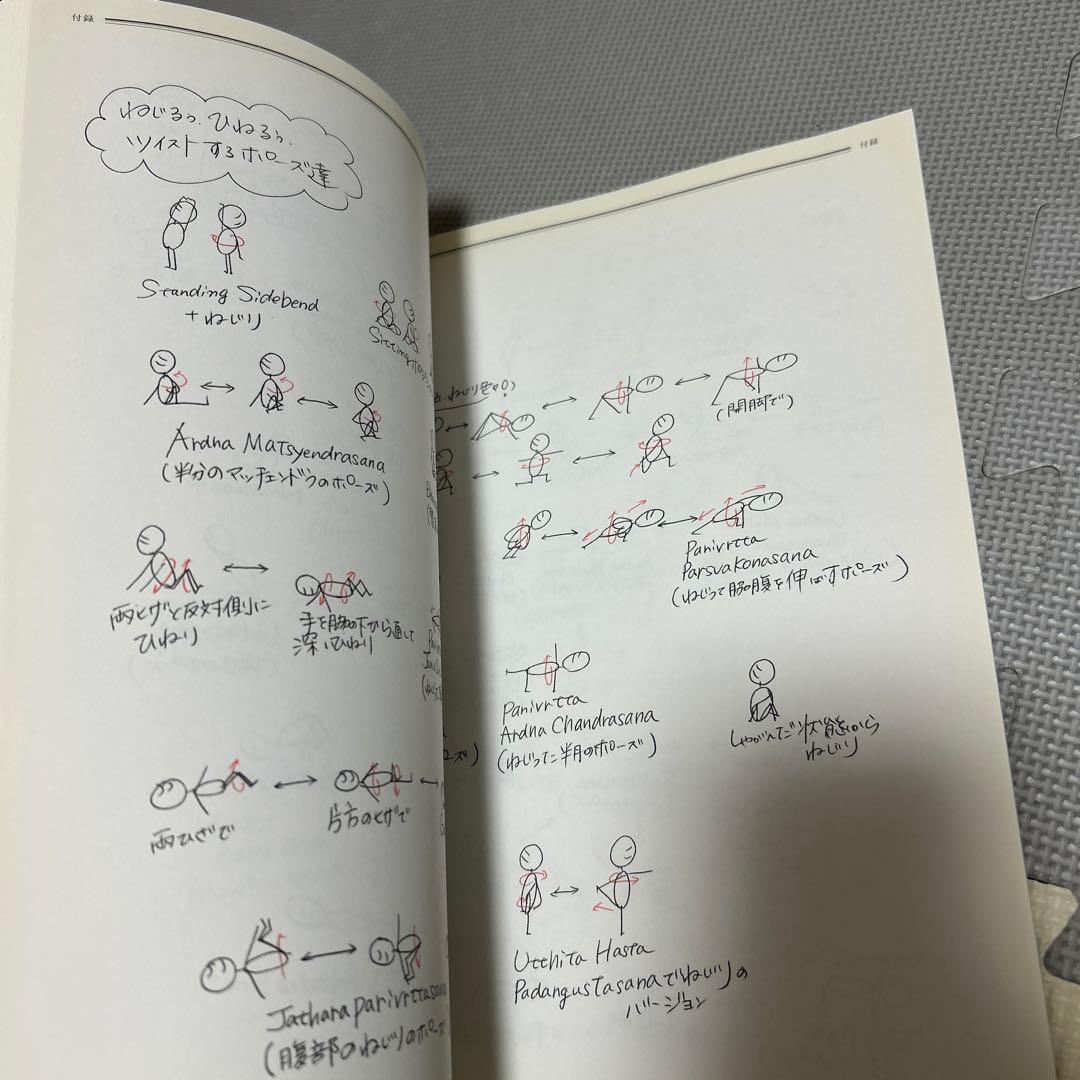 付録
ねじるっ、ひねるぅ、
ツイストするポーズ達
Standing Sidebend
+ねじり
Sitting
Ardha Matsyendrasana
(半分のマッチェンドラのポーズ)
両ヒザと反対側に
ひねり
手を脇の下から通して
深いひねり
両ひざで
片方のヒザで
Jathara parivrttasana
(腹部のねじりのポーズ
付録
(開脚で)
Parivrtta
Parsvakonasana
(ねじって脇腹を伸ばすポーズ)
Parivrtta
Ardha Chandrasana
(ねじった半月のポーズ)
しゃがんだ状態から
ねじり
Utthita Hasta
Padangustasanaでねじりの
バージョン